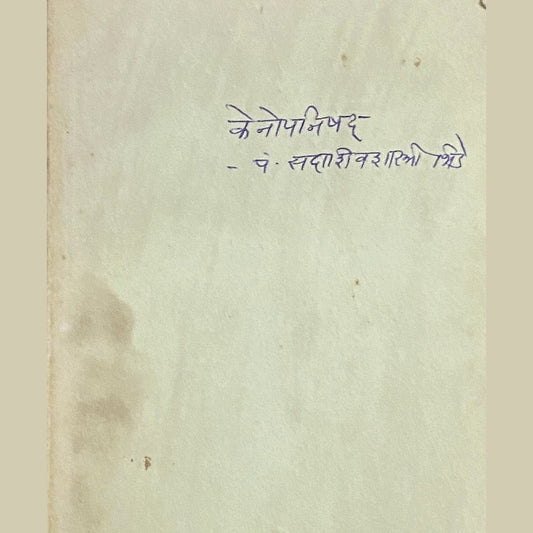 केनोपनिषद्
- पं. सदाशिवशास्त्री भिडे